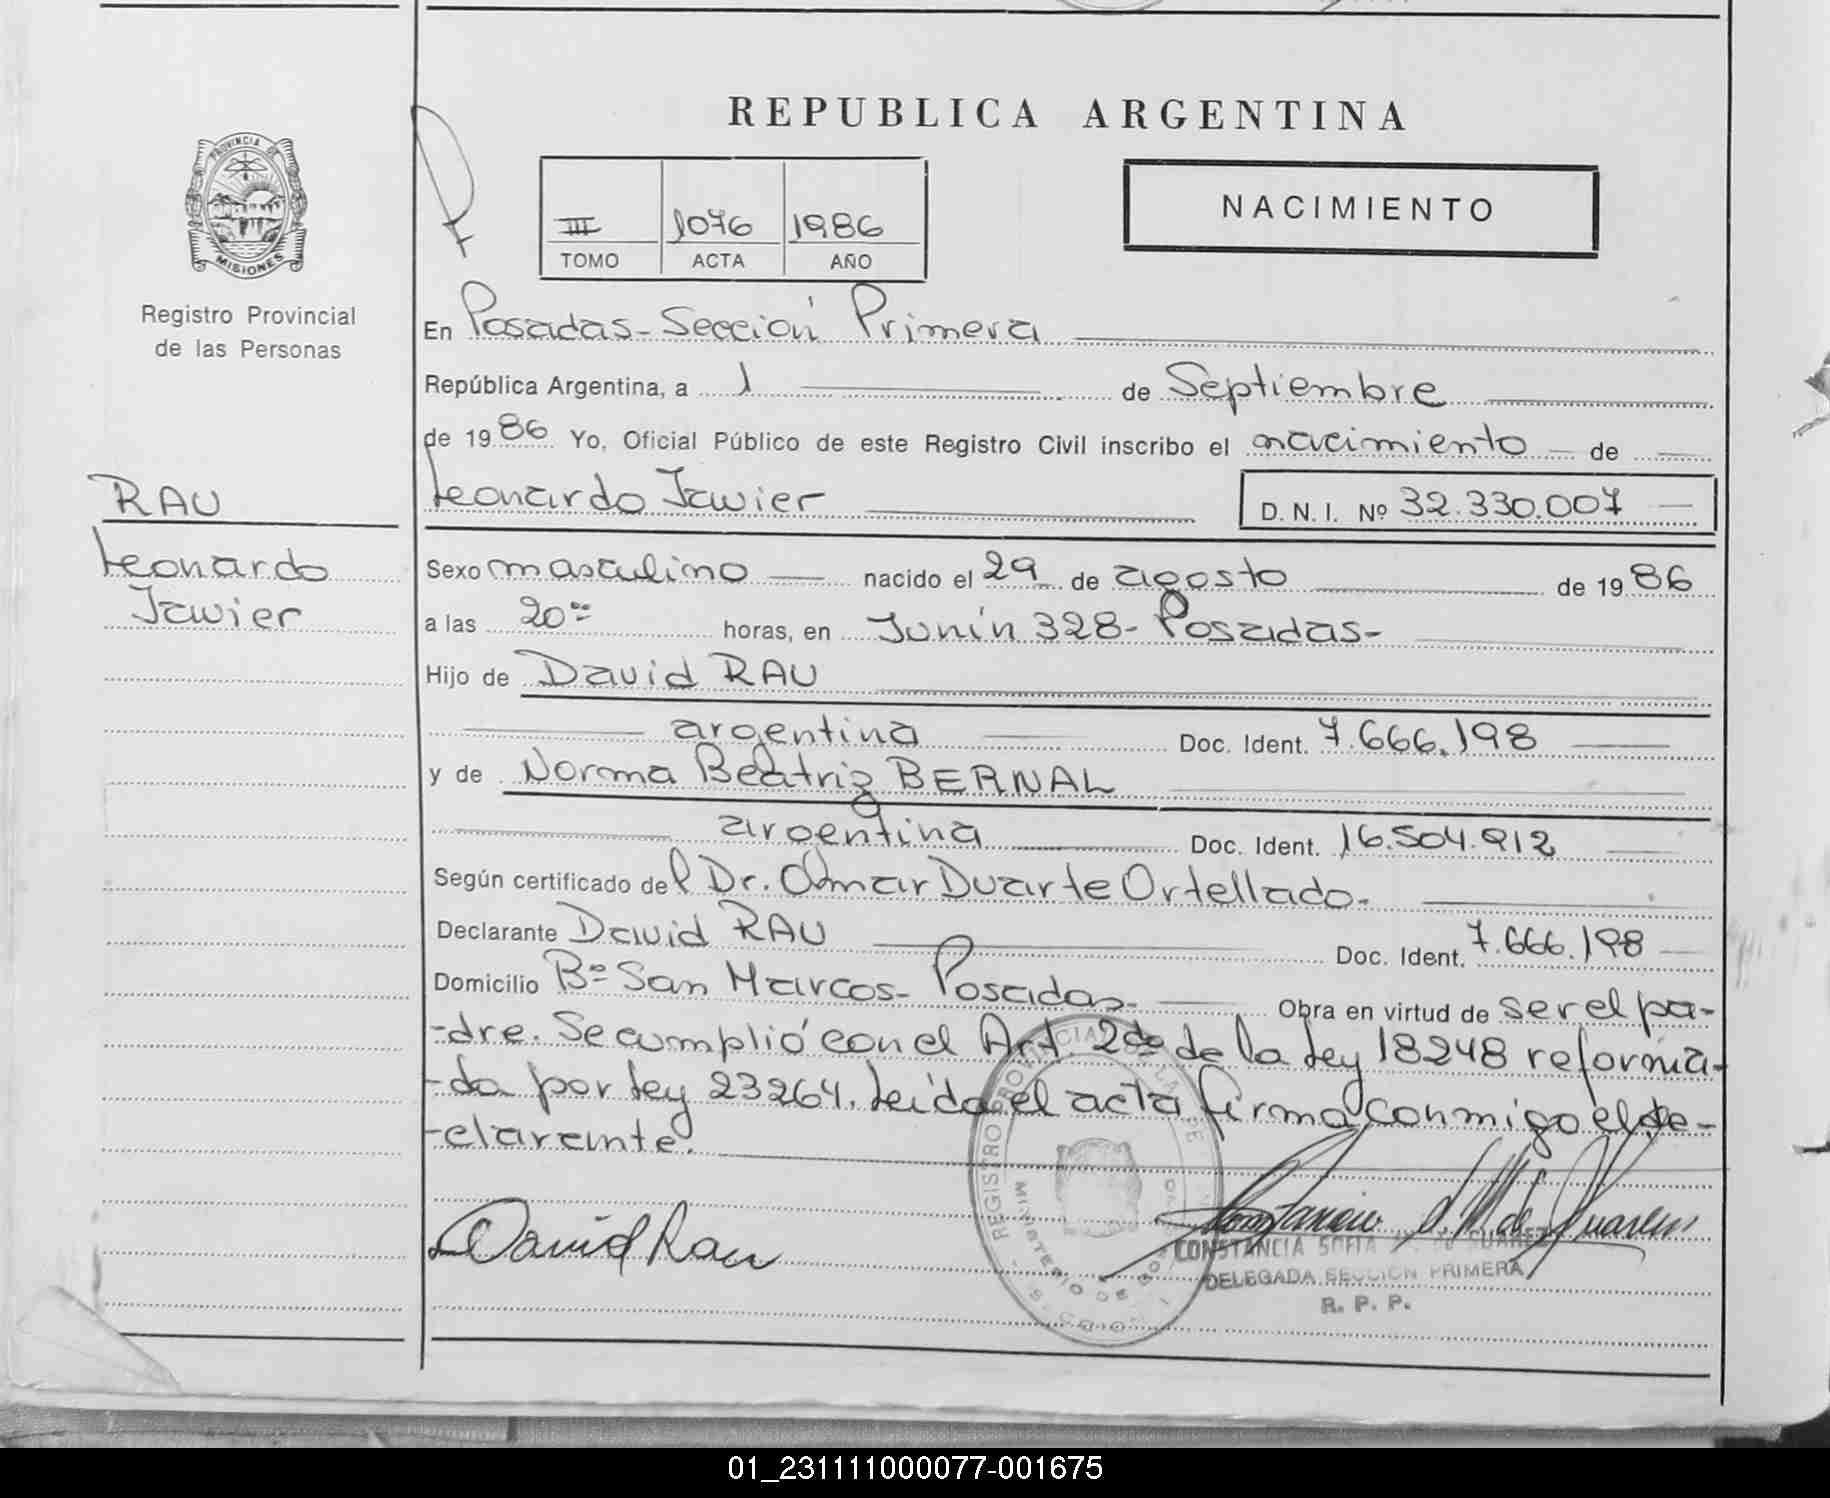 REPUBLICA ARGENTINA
PROVINCIA DE
MISIONES
Registro Provincial
de las Personas
III 1076 1986
TOMO ACTA AÑO
NACIMIENTO
En Posadas - Sección Primera
República Argentina, a 1 de Septiembre
de 1986 Yo, Oficial Público de este Registro Civil inscribo el nacimiento de
RAU
Leonardo Javier D. N. I. Nº 32.330.007
Leonardo
Javier
Sexo masculino nacido el 29 de agosto de 1986
a las 20 horas, en Junín 328 - Posadas -
Hijo de David RAU
argentina Doc. Ident. 7.666.198
y de Norma Beatriz BERNAL
argentina Doc. Ident. 16.504.912
Según certificado del Dr. Omar Duarte Ortellado.
Declarante David RAU Doc. Ident. 7.666.198
Domicilio Bº San Marcos - Posadas - Obra en virtud de ser el pa-
-dre. Se cumplió con el Art. 2do de la Ley 18248 reforma-
-da por Ley 23264. Leída el acta firma conmigo el de-
-clarante.
David Rau
REGISTRO PROVINCIAL DE LAS
MINISTERIO DE GOB
CONSTANCIA SOFIA de SUAREZ
DELEGADA SECCION PRIMERA
R. P. P.
01_231111000077-001675